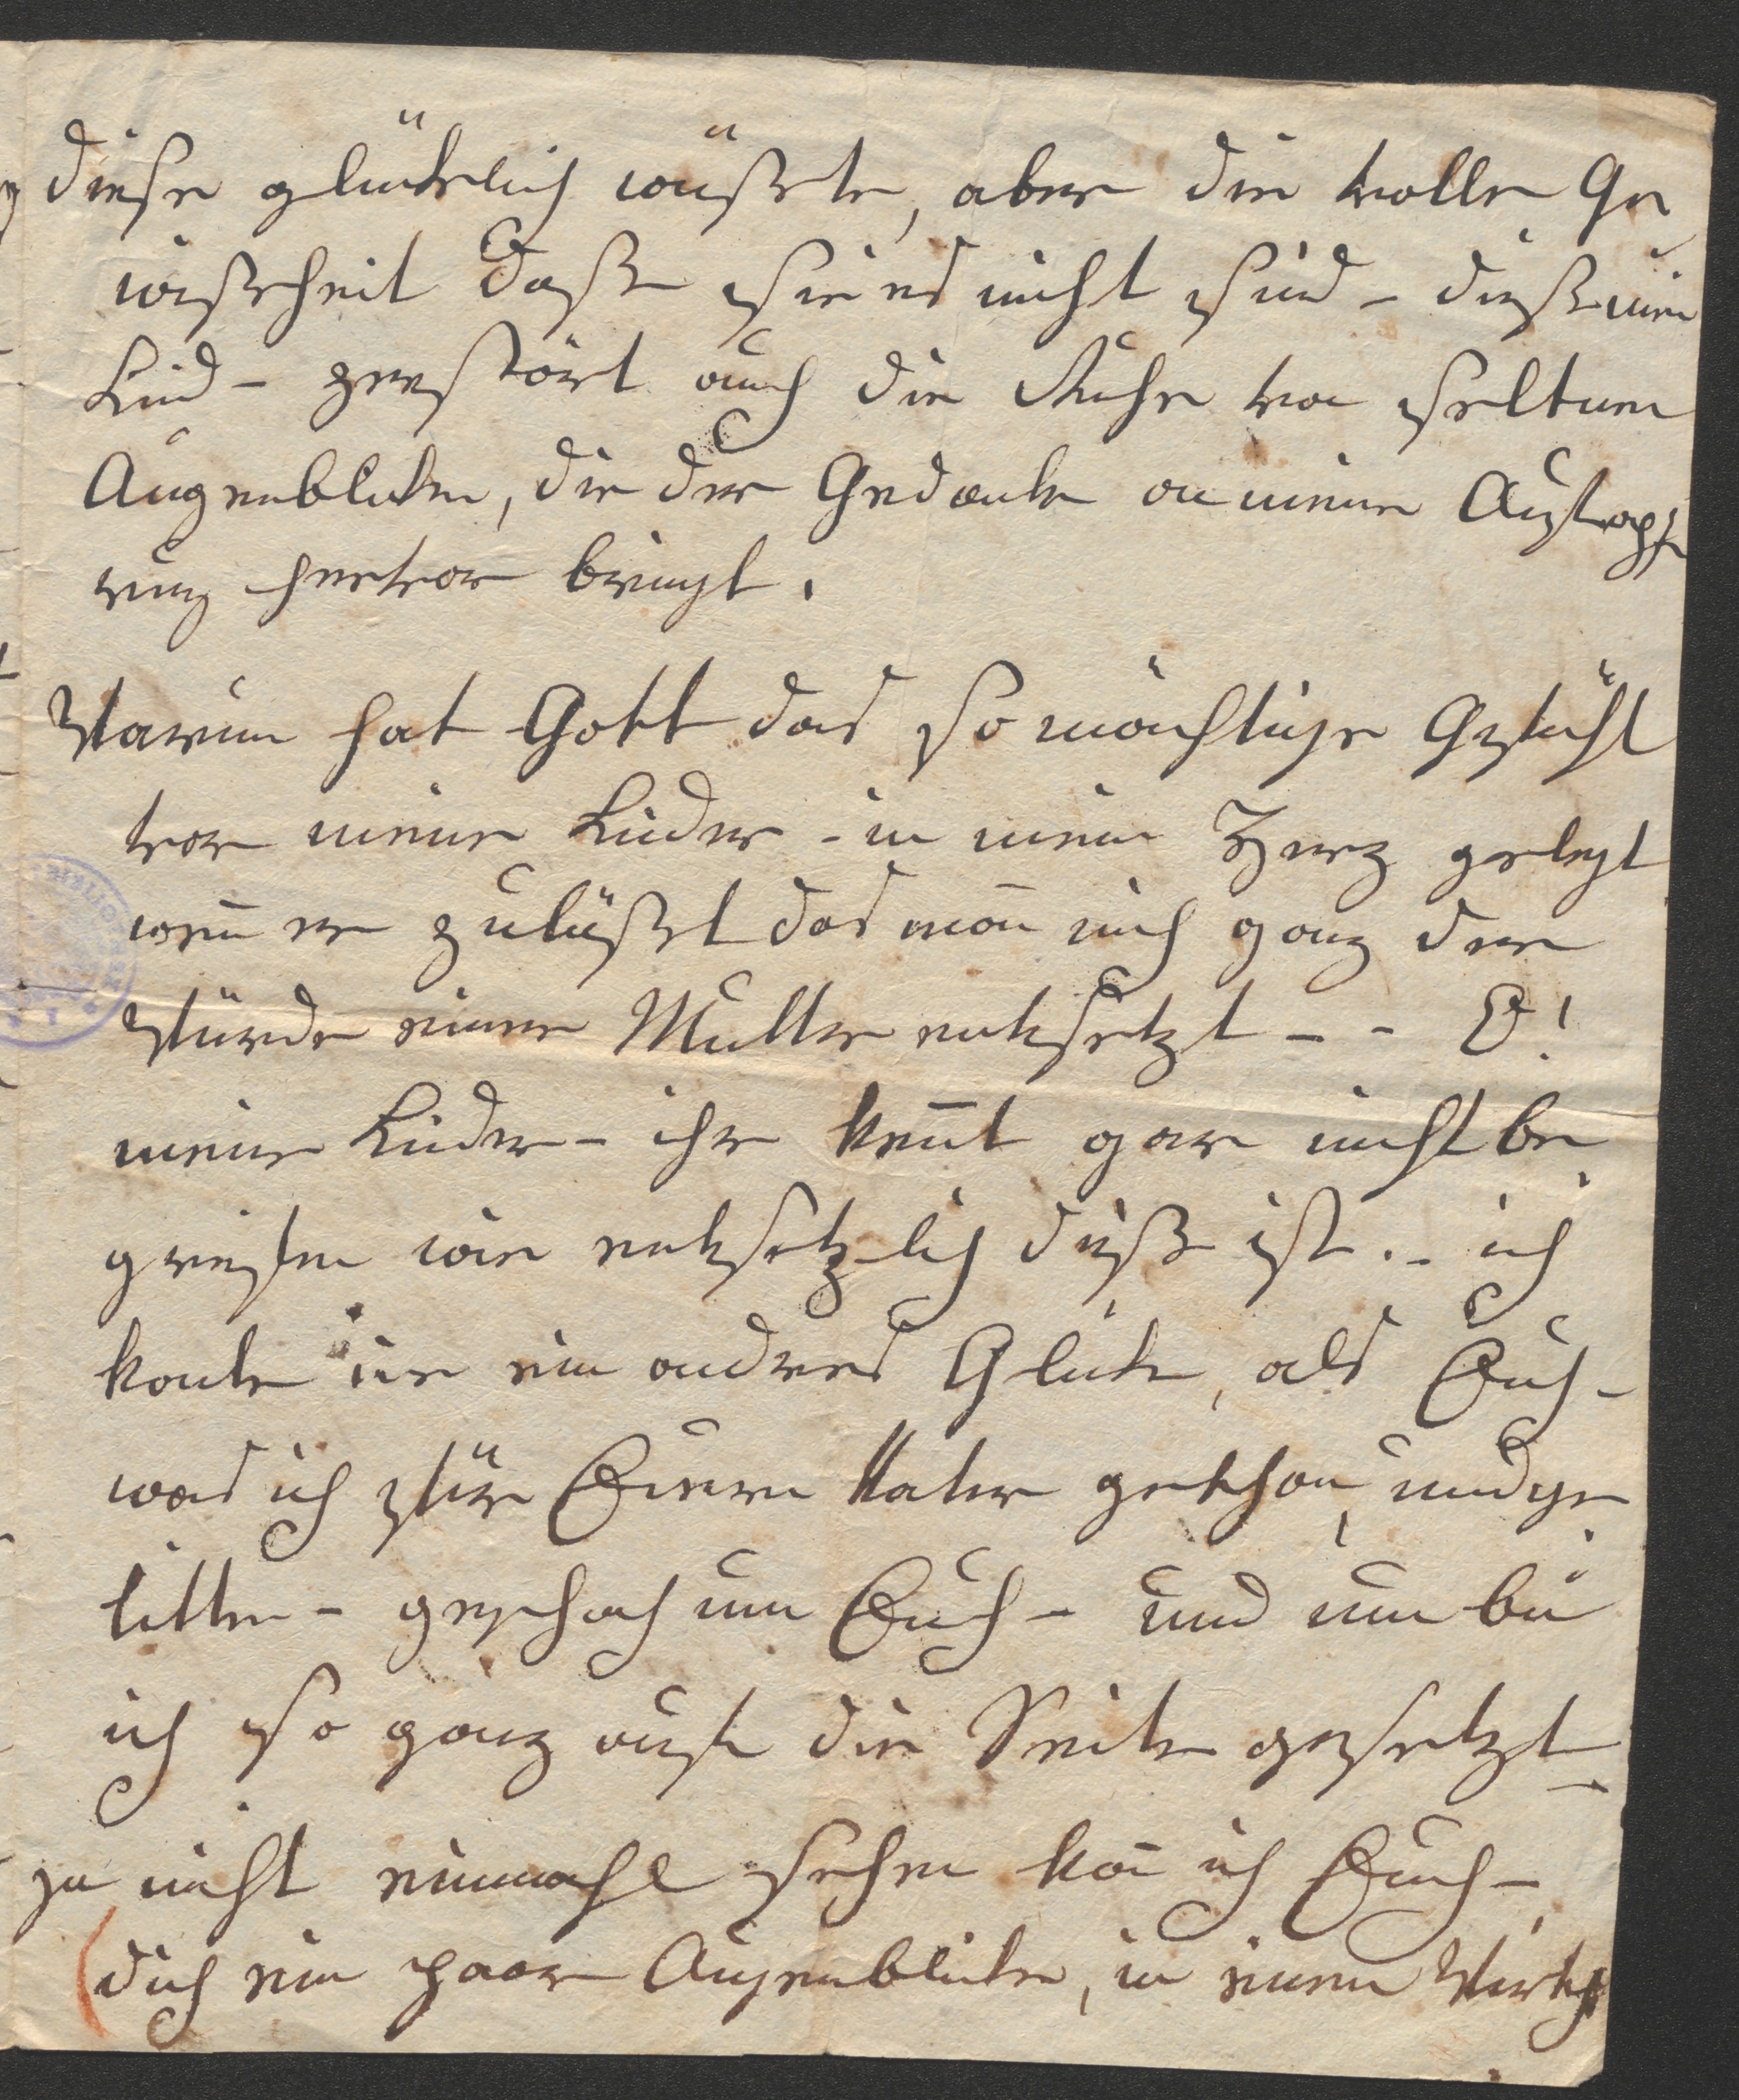 diese glücklich wüßte, aber die volle Ge
wißheit daß sie es nicht sind - dieß mein
Kind - zerstört auch die Ruhe von seltnen
Augenblicken, die der Gedanke an meine Aufopfe
rung hervor bringt.
Warum hat Gott das so mächtige Gefühl
vor meine Kinder - in mein Herz gelegt
weñ er zuläßt das mañ mich ganz der
Würde einer Mutter entsetzt - - O!
meine Kinder - ihr keñt gar nicht be
greifen wie entsetzlich dieß ist. - ich
kante nie ein andres Glück, als Euch -
was ich für Euren Vater gethan, und ge
litten - geschach um Euch - und nun bin
ich so ganz auf die Seite gesetzt -
ja nicht einmahl sehen kañ ich Euch -
dich ein paar Augenblicke, in einem Wirths
BIBLIO